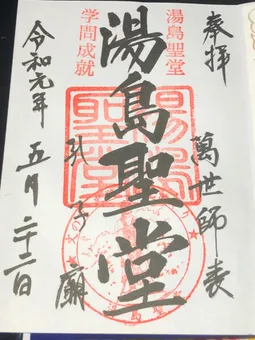 奉拝
萬世師表
湯島聖堂
学問成就
湯島聖堂
孔子廟
令和元年五月二十二日